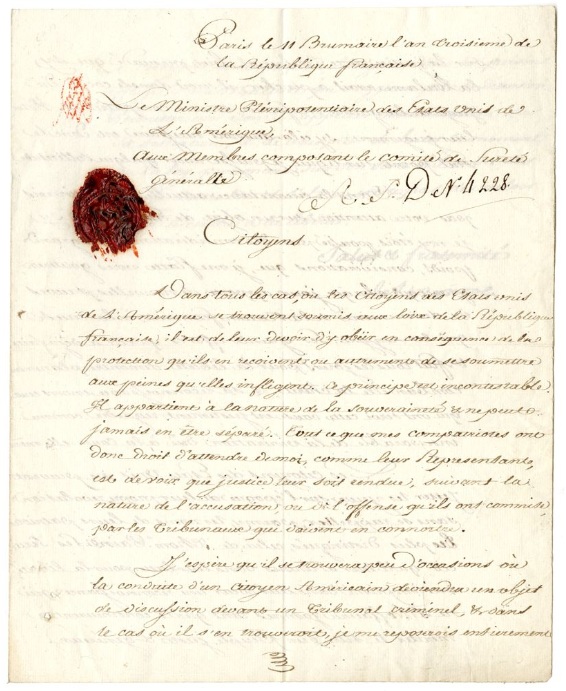 Paris le 11 Brumaire l'an troisieme de
la République française
Le Ministre Plénipotentiaire des Etats Unis de
L'Amérique,
Aux Membres composant le comité de Sureté
générale
D N. 4228
Citoyens
Dans tous les cas, où les Citoyens des Etats unis
de L'Amérique se trouvent soumis aux loix de la République
française, il est de leur devoir d'y obéir en conséquence de la
protection qu'ils en reçoivent ou autrement de se soumettre
aux peines qu'elles infligent. Ce principe est incontestable.
Il appartient à la nature de la souveraineté & ne peut
jamais en être séparé. Tout ce que mes compatriotes ont
donc droit d'attendre de moi, comme leur Représentant,
est de voir que justice leur soit rendue, suivant la
nature de l'accusation, ou de l'offense qu'ils ont commise,
par les Tribunaux qui doivent en connoitre.
J'espère qu'il se trouvera peu d'occasions où
la conduite d'un citoyen Américain deviendra un objet
de discussion devant un Tribunal criminel, & dans
le cas où il s'en trouveroit, je me reposerois entierement